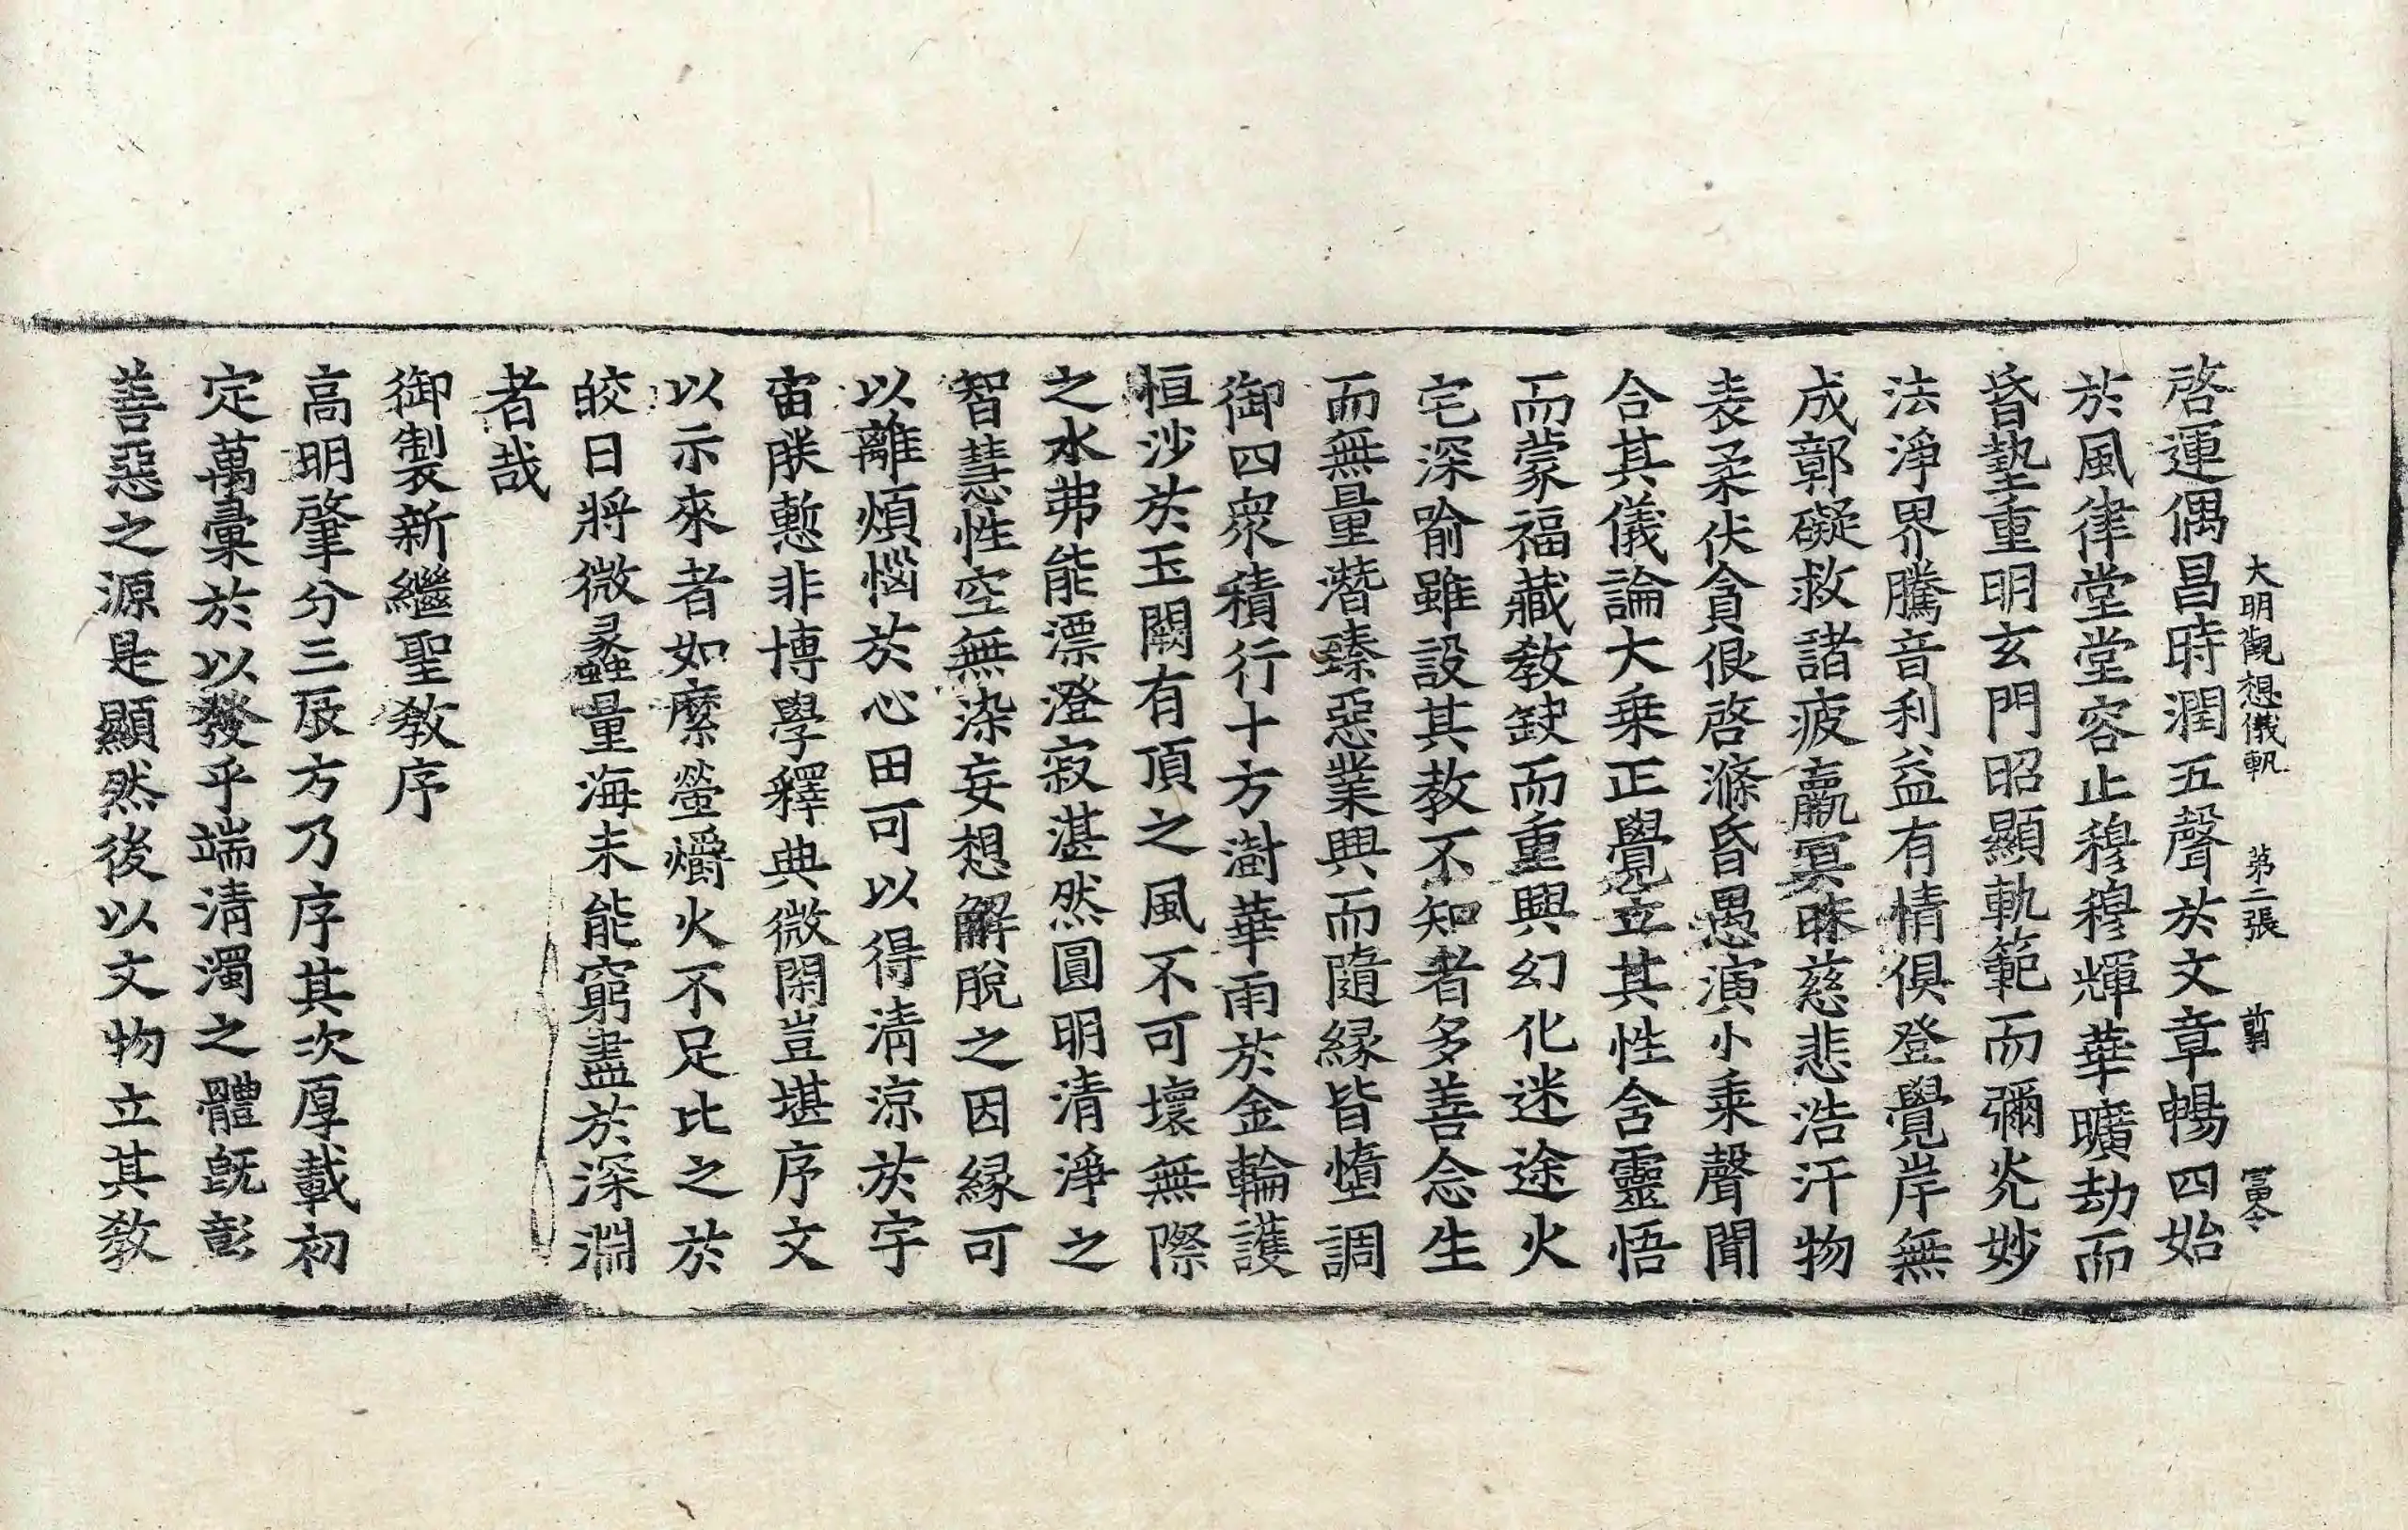 大明觀想儀軌 第二張 前 富令
啓運偶昌時潤五聲於文章暢四始
於風律堂堂容止穆穆輝華曠劫而
昏墊重明玄門昭顯軌範而彌光妙
法淨界騰音利益有情俱登覺岸無
成鄣礙救諸疲羸冥昧慈悲浩汗物
表柔伏貪很啓滌昏愚演小乘聲聞
合其儀論大乗正覺立其性含靈悟
而蒙福藏教缺而重興幻化迷途火
宅深喻雖設其教不知者多善念生
而無量潛臻惡業興而隨縁皆墮調
御四衆積行十方澍華雨於金輪護
恒沙於玉闕有頂之風不可壞無際
之水弗能漂澄寂湛然圓明清淨之
智慧性空無染妄想解脫之因縁可
以離煩惱於心田可以得清涼於宇
宙朕慙非博學釋典微閑豈堪序文
以示來者如縻螢爝火不足比之於
皎日將微蠡量海未能窮盡於深淵
者哉
御製新繼聖教序
高明肇分三辰方乃序其次厚載初
定萬彙於以發乎端清濁之體旣彰
善惡之源是顯然後以文物立其教